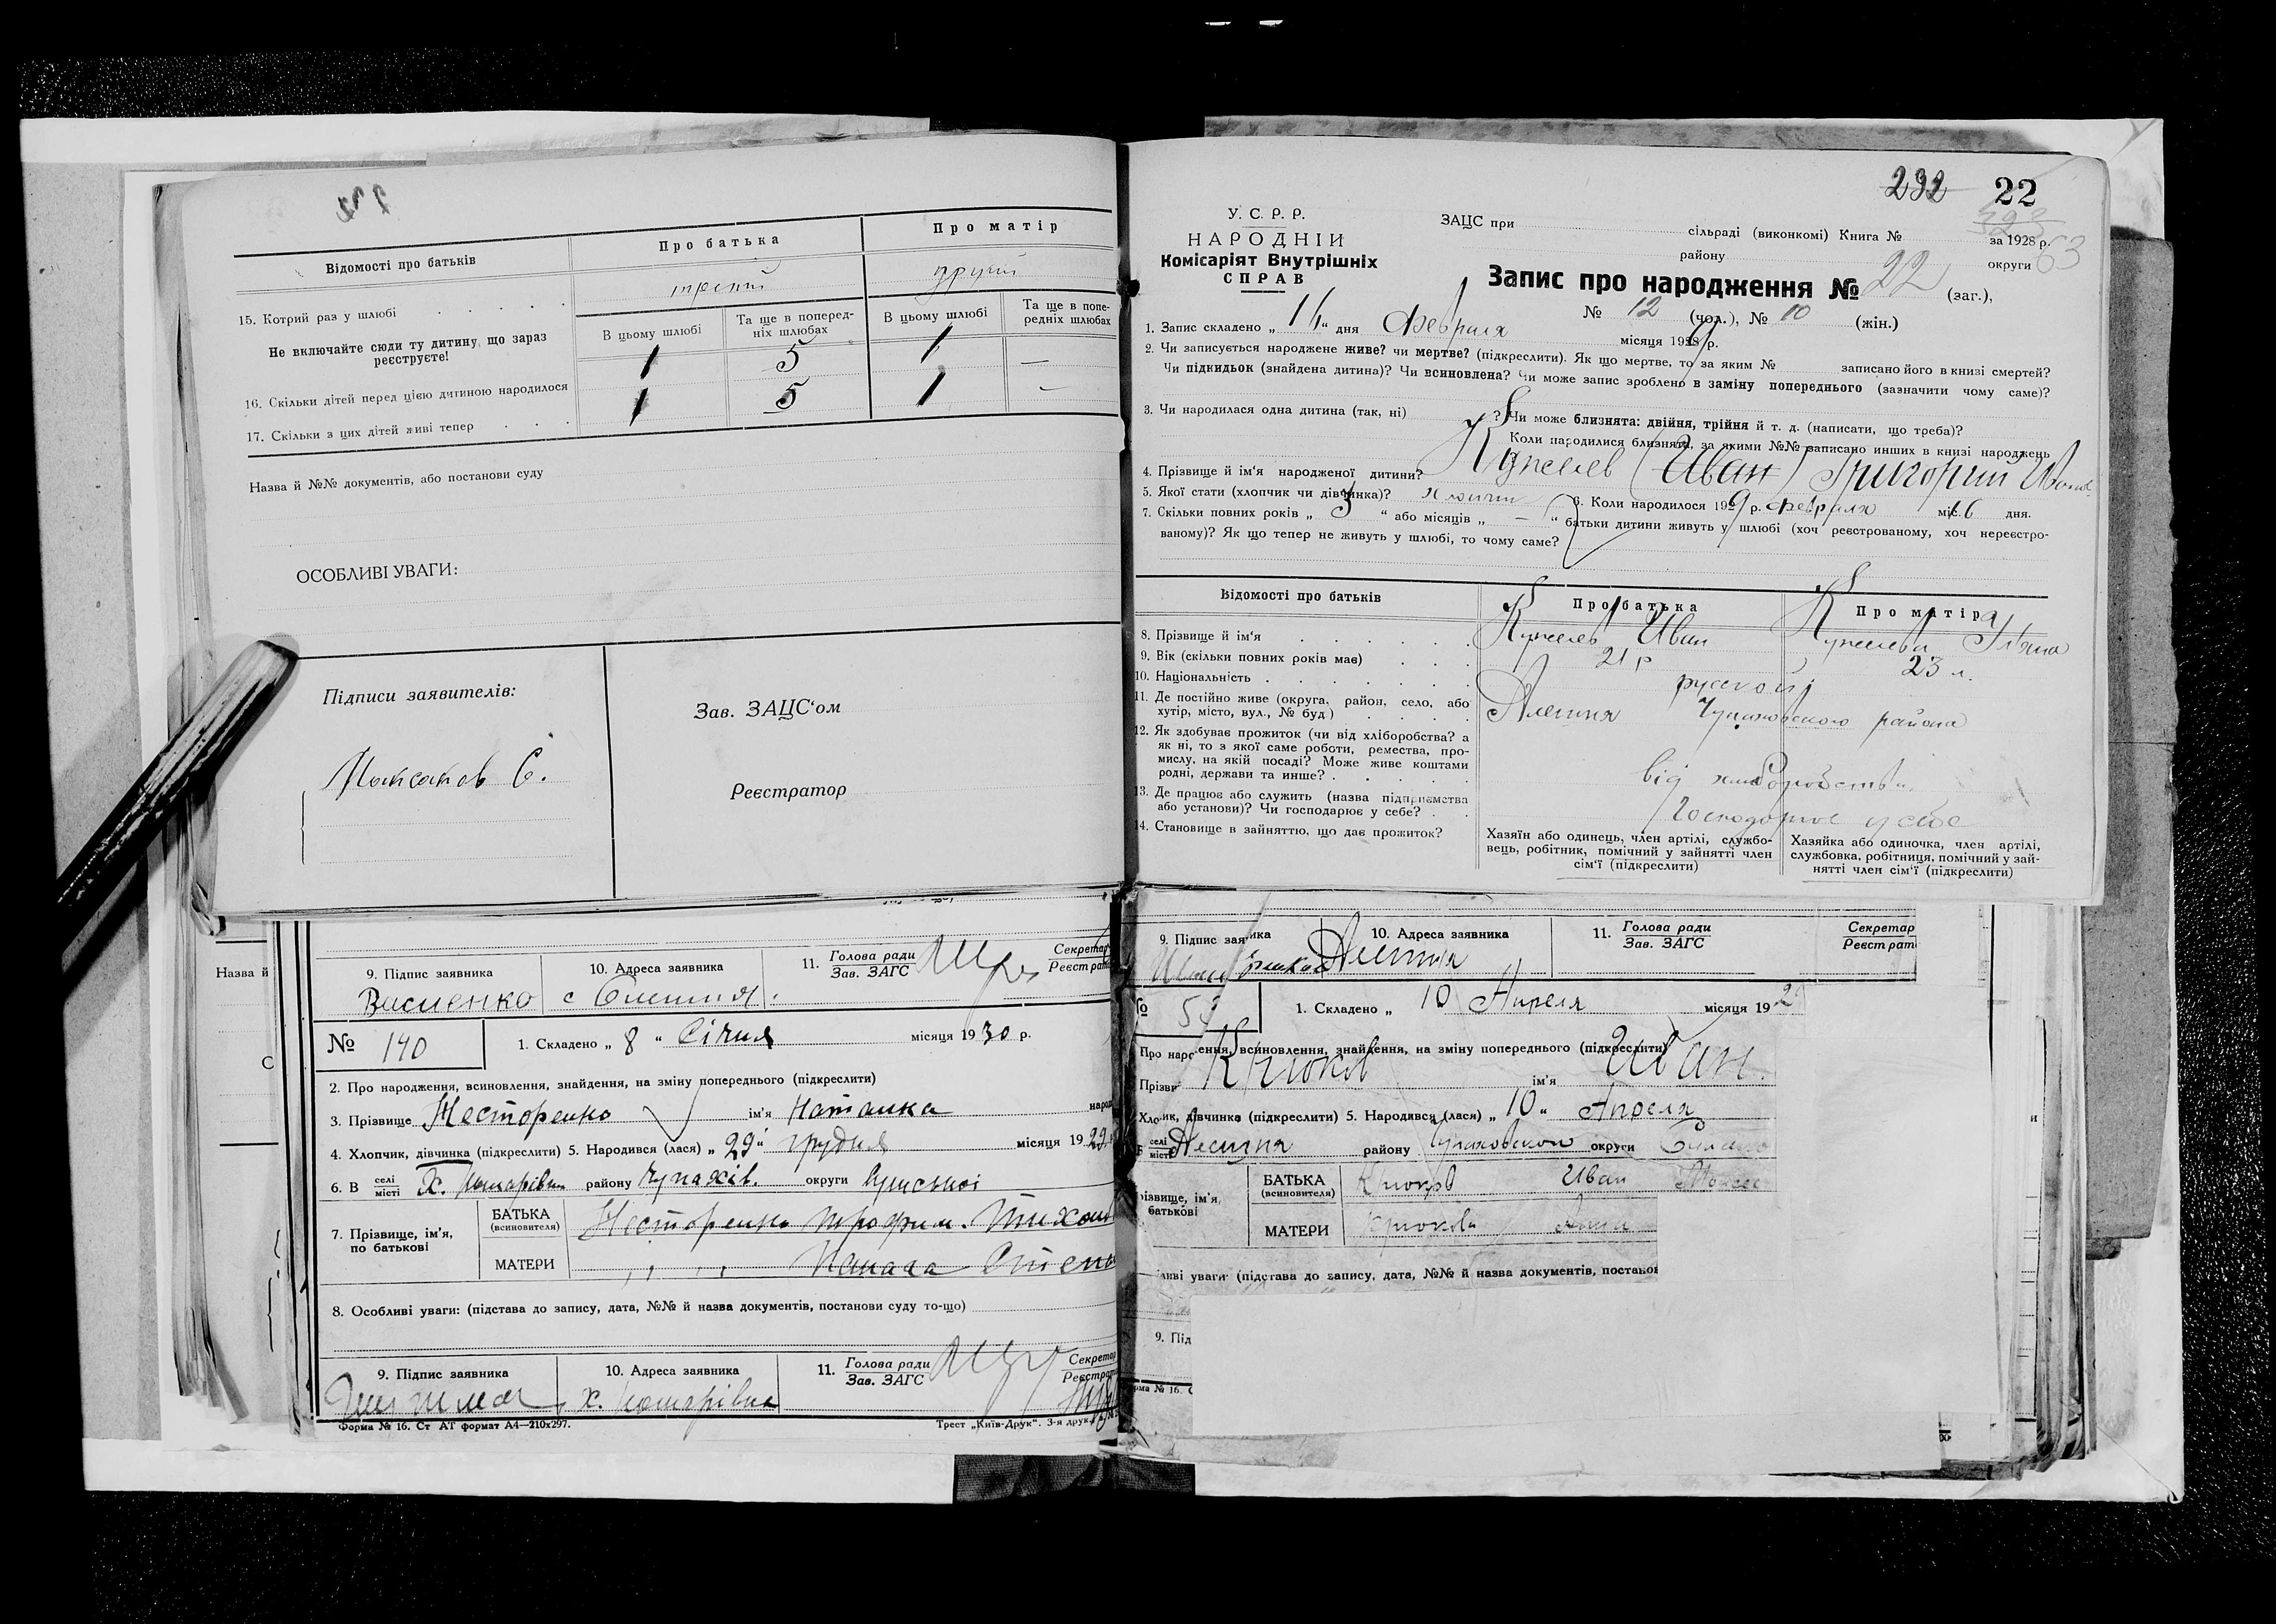 Відомості про батьків
Про батька
Про матір
третій
другий
15. Котрий раз у шлюбі
В цьому шлюбі
Та ще в поперед-
ніх шлюбах
В цьому шлюбі
Та ще в попе-
редніх шлюбах
Не включайте сюди ту дитину, що зараз
реєструєте!
16. Скільки дітей перед цією дитиною народилося
1 5 1 —
17. Скільки з цих дітей живі тепер
1 5 1 —
Назва й №№ документів, або постанови суду
ОСОБЛИВІ УВАГИ:
Підписи заявителів:
Зав. ЗАЦС'ом
Реєстратор
Назва й
9. Підпис заявника
10. Адреса заявника
11. Голова ради
Зав. ЗАГС
Секретар
Реєстрат
Василенко
№ 140
1. Складено „ 8 “ Січня місяця 1930 р.
2. Про народження, всиновлення, знайдення, на зміну попереднього (підкреслити)
3. Прізвище Несторенко ім'я Наталка народ
4. Хлопчик, дівчинка (підкреслити) 5. Народився (лася) „ 29 “ грудня місяця 1929
6. В селі
місті
район у Чупахів. округи Сумської
7. Прізвище, ім'я,
по батькові
БАТЬКА
(всиновителя)
Несторенко Трофим
МАТЕРИ
8. Особливі уваги: (підстава до запису, дата, №№ й назва документів, постанови суду то-що)
9. Підпис заявника
10. Адреса заявника
11. Голова ради
Зав. ЗАГС
Секретар
Реєстрат
Форма № 16. Ст АТ формат А4—210х297.
Трест „Київ-Друк“. 3-я друк.
232 22
У. С. Р. Р.
НАРОДНІЙ
Комісаріят Внутрішніх
СПРАВ
ЗАЦС при
сільраді (виконкомі) Книга № за 1928 р.
району округи 63
Запис про народження № 22 (заг.),
№ 12 (чол.), № 10 (жін.)
1. Запис складено „ 16 “ дня Февраля місяця 1929 р.
2. Чи записується народжене живе? чи мертве? (підкреслити). Як що мертве, то за яким № записано його в книзі смертей?
Чи підкидьок (знайдена дитина)? Чи всиновлена? Чи може запис зроблено в заміну попереднього (зазначити чому саме)?
3. Чи народилася одна дитина (так, ні) ? Чи може близнята: двійня, трійня й т. д. (написати, що треба)?
Коли народилися близнята, за якими №№ записано инших в книзі народжень
4. Прізвище й ім'я народженої дитини? (Иван) Григорий
5. Якої стати (хлопчик чи дівчинка)? хлопчик 6. Коли народилося 1929 р. Февраля міс. 6 дня.
7. Скільки повних років „ 3 “ або місяців „ — “ батьки дитини живуть у шлюбі (хоч реєстрованому, хоч нереєстро-
ваному)? Як що тепер не живуть у шлюбі, то чому саме?
Відомості про батьків
Про батька
Про матір
8. Прізвище й ім'я Иван
9. Вік (скільки повних років має) 21 р 23 л.
10. Національність русской
11. Де постійно живе (округа, район, село, або
хутір, місто, вул., № буд.)
Алешня Чупаховского района
12. Як здобуває прожиток (чи від хліборобства? а
як ні, то з якої саме роботи, ремества, про-
мислу, на якій посаді? Може живе коштами
родні, держави та инше?
від хліборобства
13. Де працює або служить (назва підприємства
або установи)? Чи господарює у себе?
Господарює у себе
14. Становище в зайняттю, що дає прожиток?
Хазяїн або одинець, член артілі, службо-
вець, робітник, помічний у зайнятті член
сім'ї (підкреслити)
Хазяйка або одиночка, член артілі,
службовка, робітниця, помічний у зай-
нятті член сім'ї (підкреслити)
9. Підпис заявника
10. Адреса заявника
11. Голова ради
Зав. ЗАГС
Секретар
Реєстрат
Алешня
№ 53
1. Складено „ 10 Апреля місяця 192
Про народження, всиновлення, знайдення, на зміну попереднього (підкреслити)
Крюков ім'я Иван.
Хлопчик, дівчинка (підкреслити) 5. Народився (лася) „ 10 “ Апреля
селі
місті
Алешня району Чупаховского округи
БАТЬКА
(всиновителя)
Крюков Иван
різвище, ім'я,
батькові
МАТЕРИ
Крюкова
уваги: (підстава до запису, дата, №№ й назва документів, постанов
9. Під